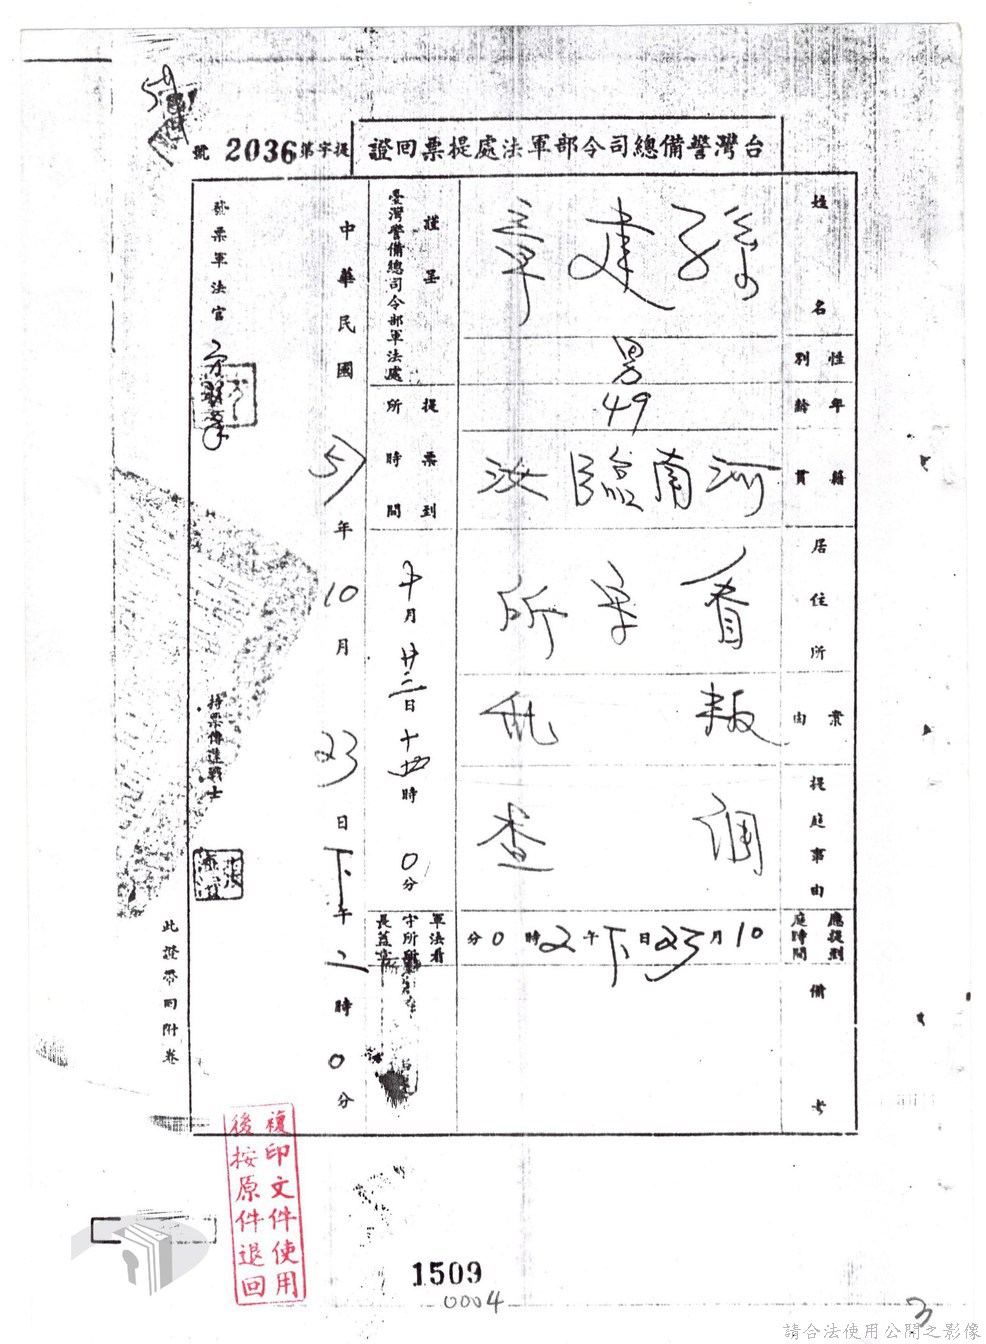 59
台灣警備總司令部軍法處提票回證
提字第2036號
姓名 孫建章
性別 男
年齡 49
籍貫 河南臨汝
居住所 看守所
案由 叛亂
提庭事由 調查
應提到庭時間 10月23日下午2時0分
備考
謹呈
臺灣警備總司令部軍法處
提票到所時間 十月廿三日十四時0分
軍法看守所所長蓋章
中華民國57年10月23日下午二時0分
發票軍法官
持票傳達戰士
此證帶回附卷
複印文件使用
後按原件退回
1509
0004
3
請合法使用公開之影像